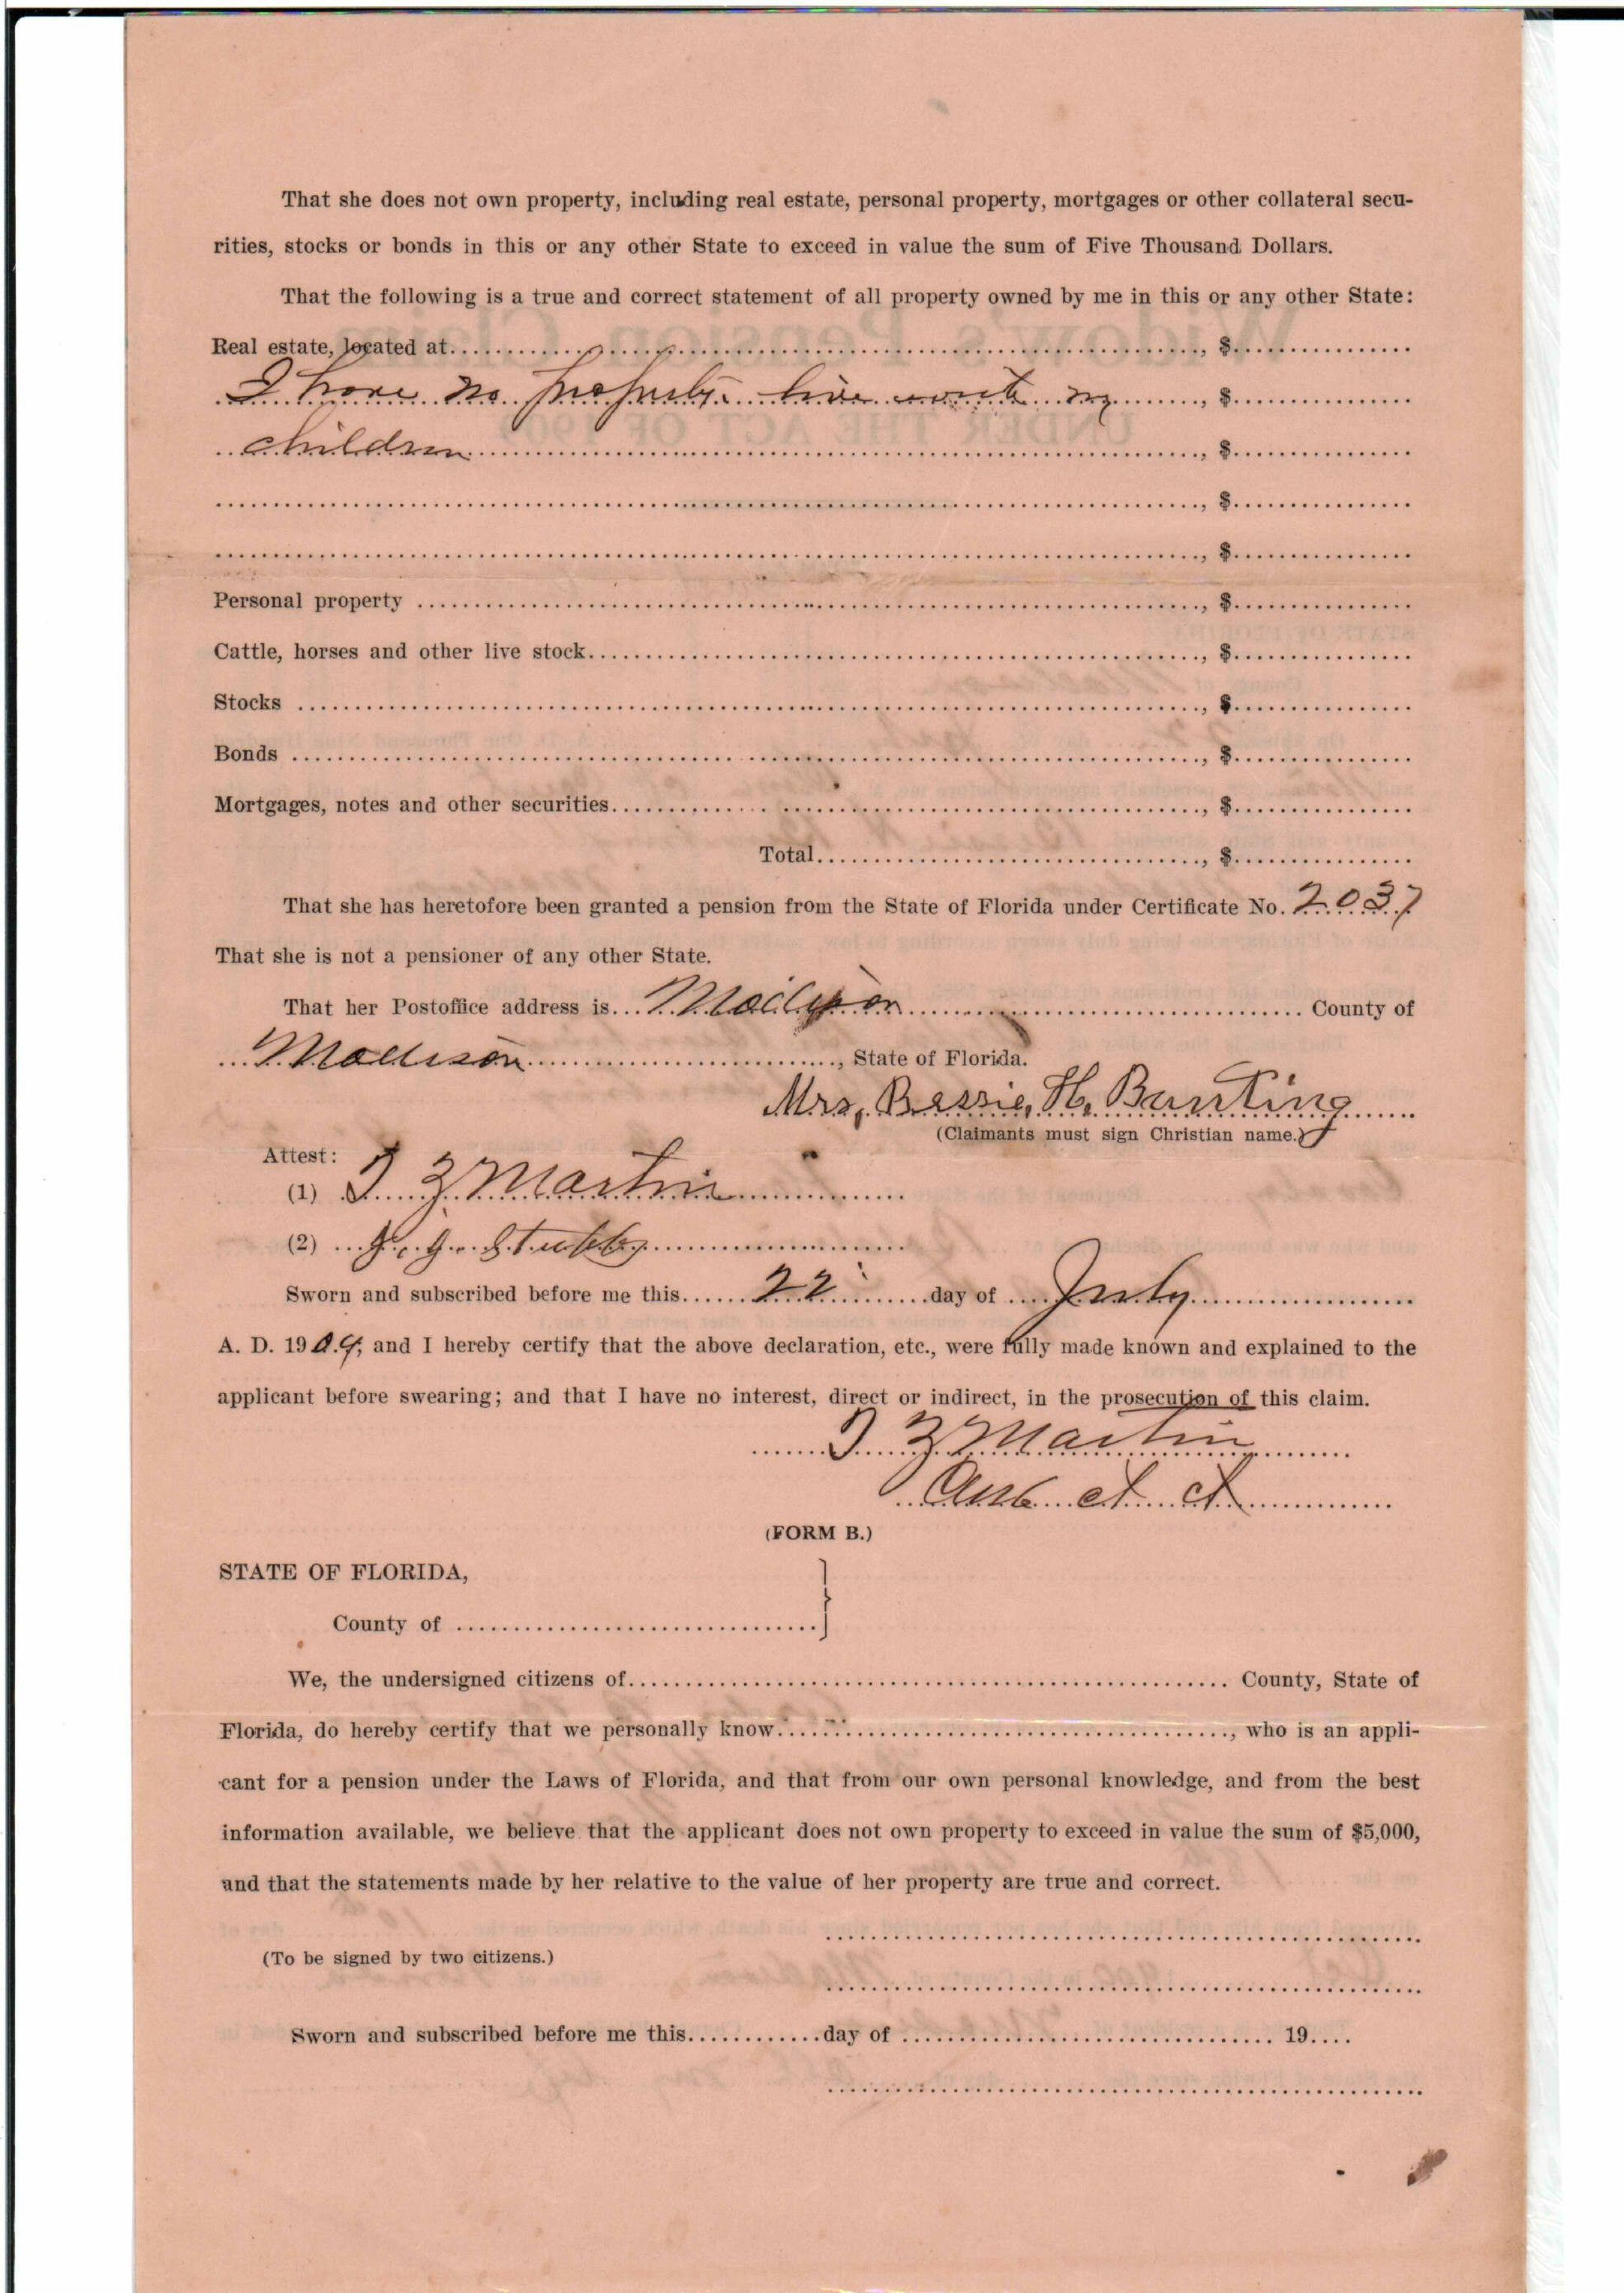 That she does not own property, including real estate, personal property, mortgages or other collateral secu-
rities, stocks or bonds in this or any other State to exceed in value the sum of Five Thousand Dollars.
That the following is a true and correct statement of all property owned by me in this or any other State:
Real estate, located at............, $............
I have no property. live with my ............, $............
children ............, $............
............, $............
............, $............
Personal property ............, $............
Cattle, horses and other live stock............, $............
Stocks ............, $............
Bonds ............, $............
Mortgages, notes and other securities............, $............
Total............, $............
That she has heretofore been granted a pension from the State of Florida under Certificate No. 2037
That she is not a pensioner of any other State.
That her Postoffice address is...Madison............ County of
Madison............, State of Florida.
Mrs, Bessie, H. Bunting
(Claimants must sign Christian name.)
Attest:
(1) T Z Martin
(2) J. G. Stubbs
Sworn and subscribed before me this......22......day of ....July............
A. D. 1909, and I hereby certify that the above declaration, etc., were fully made known and explained to the
applicant before swearing; and that I have no interest, direct or indirect, in the prosecution of this claim.
T Z Martin
Clerk Ct Ct
(FORM B.)
STATE OF FLORIDA,
County of ............
We, the undersigned citizens of............ County, State of
Florida, do hereby certify that we personally know............, who is an appli-
cant for a pension under the Laws of Florida, and that from our own personal knowledge, and from the best
information available, we believe that the applicant does not own property to exceed in value the sum of $5,000,
and that the statements made by her relative to the value of her property are true and correct.
(To be signed by two citizens.)
Sworn and subscribed before me this............day of ............ 19....